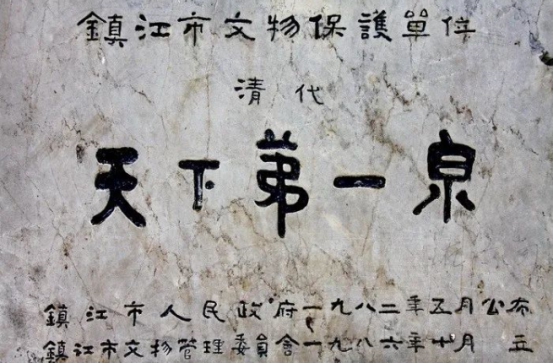 鎮江市文物保護單位
清代
天下第一泉
鎮江市人民政府一九八二年五月公布
鎮江市文物管理委員會一九八六年十月立